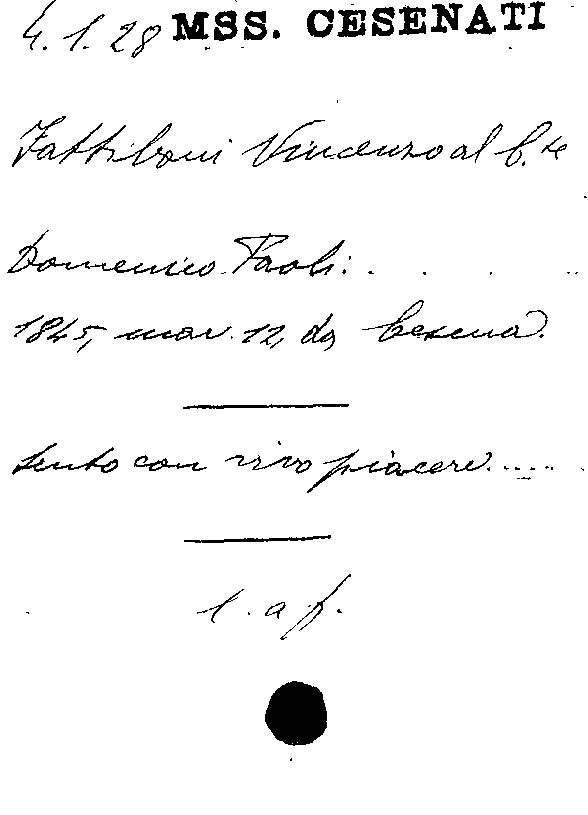 4.1.28 MSS. CESENATI
Fattiboni Vincenzo al C.te
Domenico Paoli. . . . ..
1845, mar. 12, da Cesena.
Sento con vivo piacere......
l. a f.